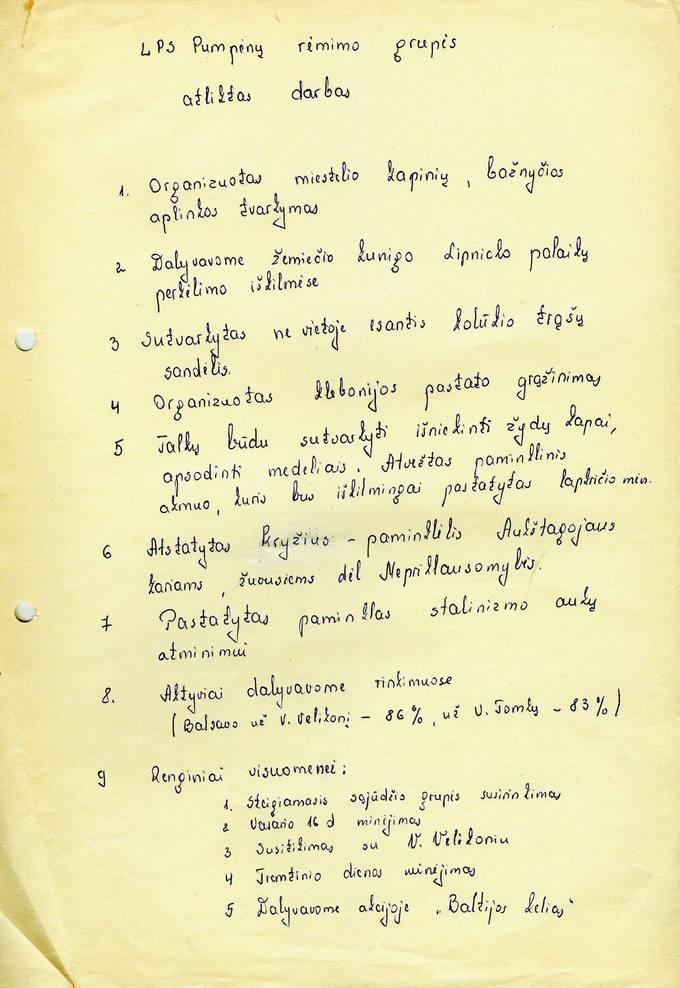 LPS Pumpėnų rėmimo grupės
atliktas darbas
1. Organizuotas miestelio kapinių, bažnyčios
aplinkos tvarkymas
2 Dalyvavome žemiečio kunigo Lipnicko palaikų
perkėlimo iškilmėse
3 Sutvarkytas ne vietoje esantis kolūkio trąšų
sandėlis.
4 Organizuotas klebonijos pastato grąžinimas
5 Talkų būdu sutvarkyti išniekinti žydų kapai,
apsodinti medeliais. Atvežtas paminklinis
akmuo, kuris bus iškilmingai pastatytas lapkričio mėn.
6 Atstatytas kryžius - paminklėlis Aukštagojaus
kariams, žuvusiems dėl Nepriklausomybės.
7 Pastatytas paminklas stalinizmo aukų
atminimui
8. Aktyviai dalyvavome rinkimuose
(Balsavo už V. Velikonį - 86%, už V. Tomkų - 83%)
9 Renginiai visuomenei:
1. Steigiamasis sąjūdžio grupės susirinkimas
2 Vasario 16 d minėjimas
3 Susitikimas su V. Velikoniu
4 Tremtinio dienos minėjimas
5 Dalyvavome akcijoje „Baltijos kelias"